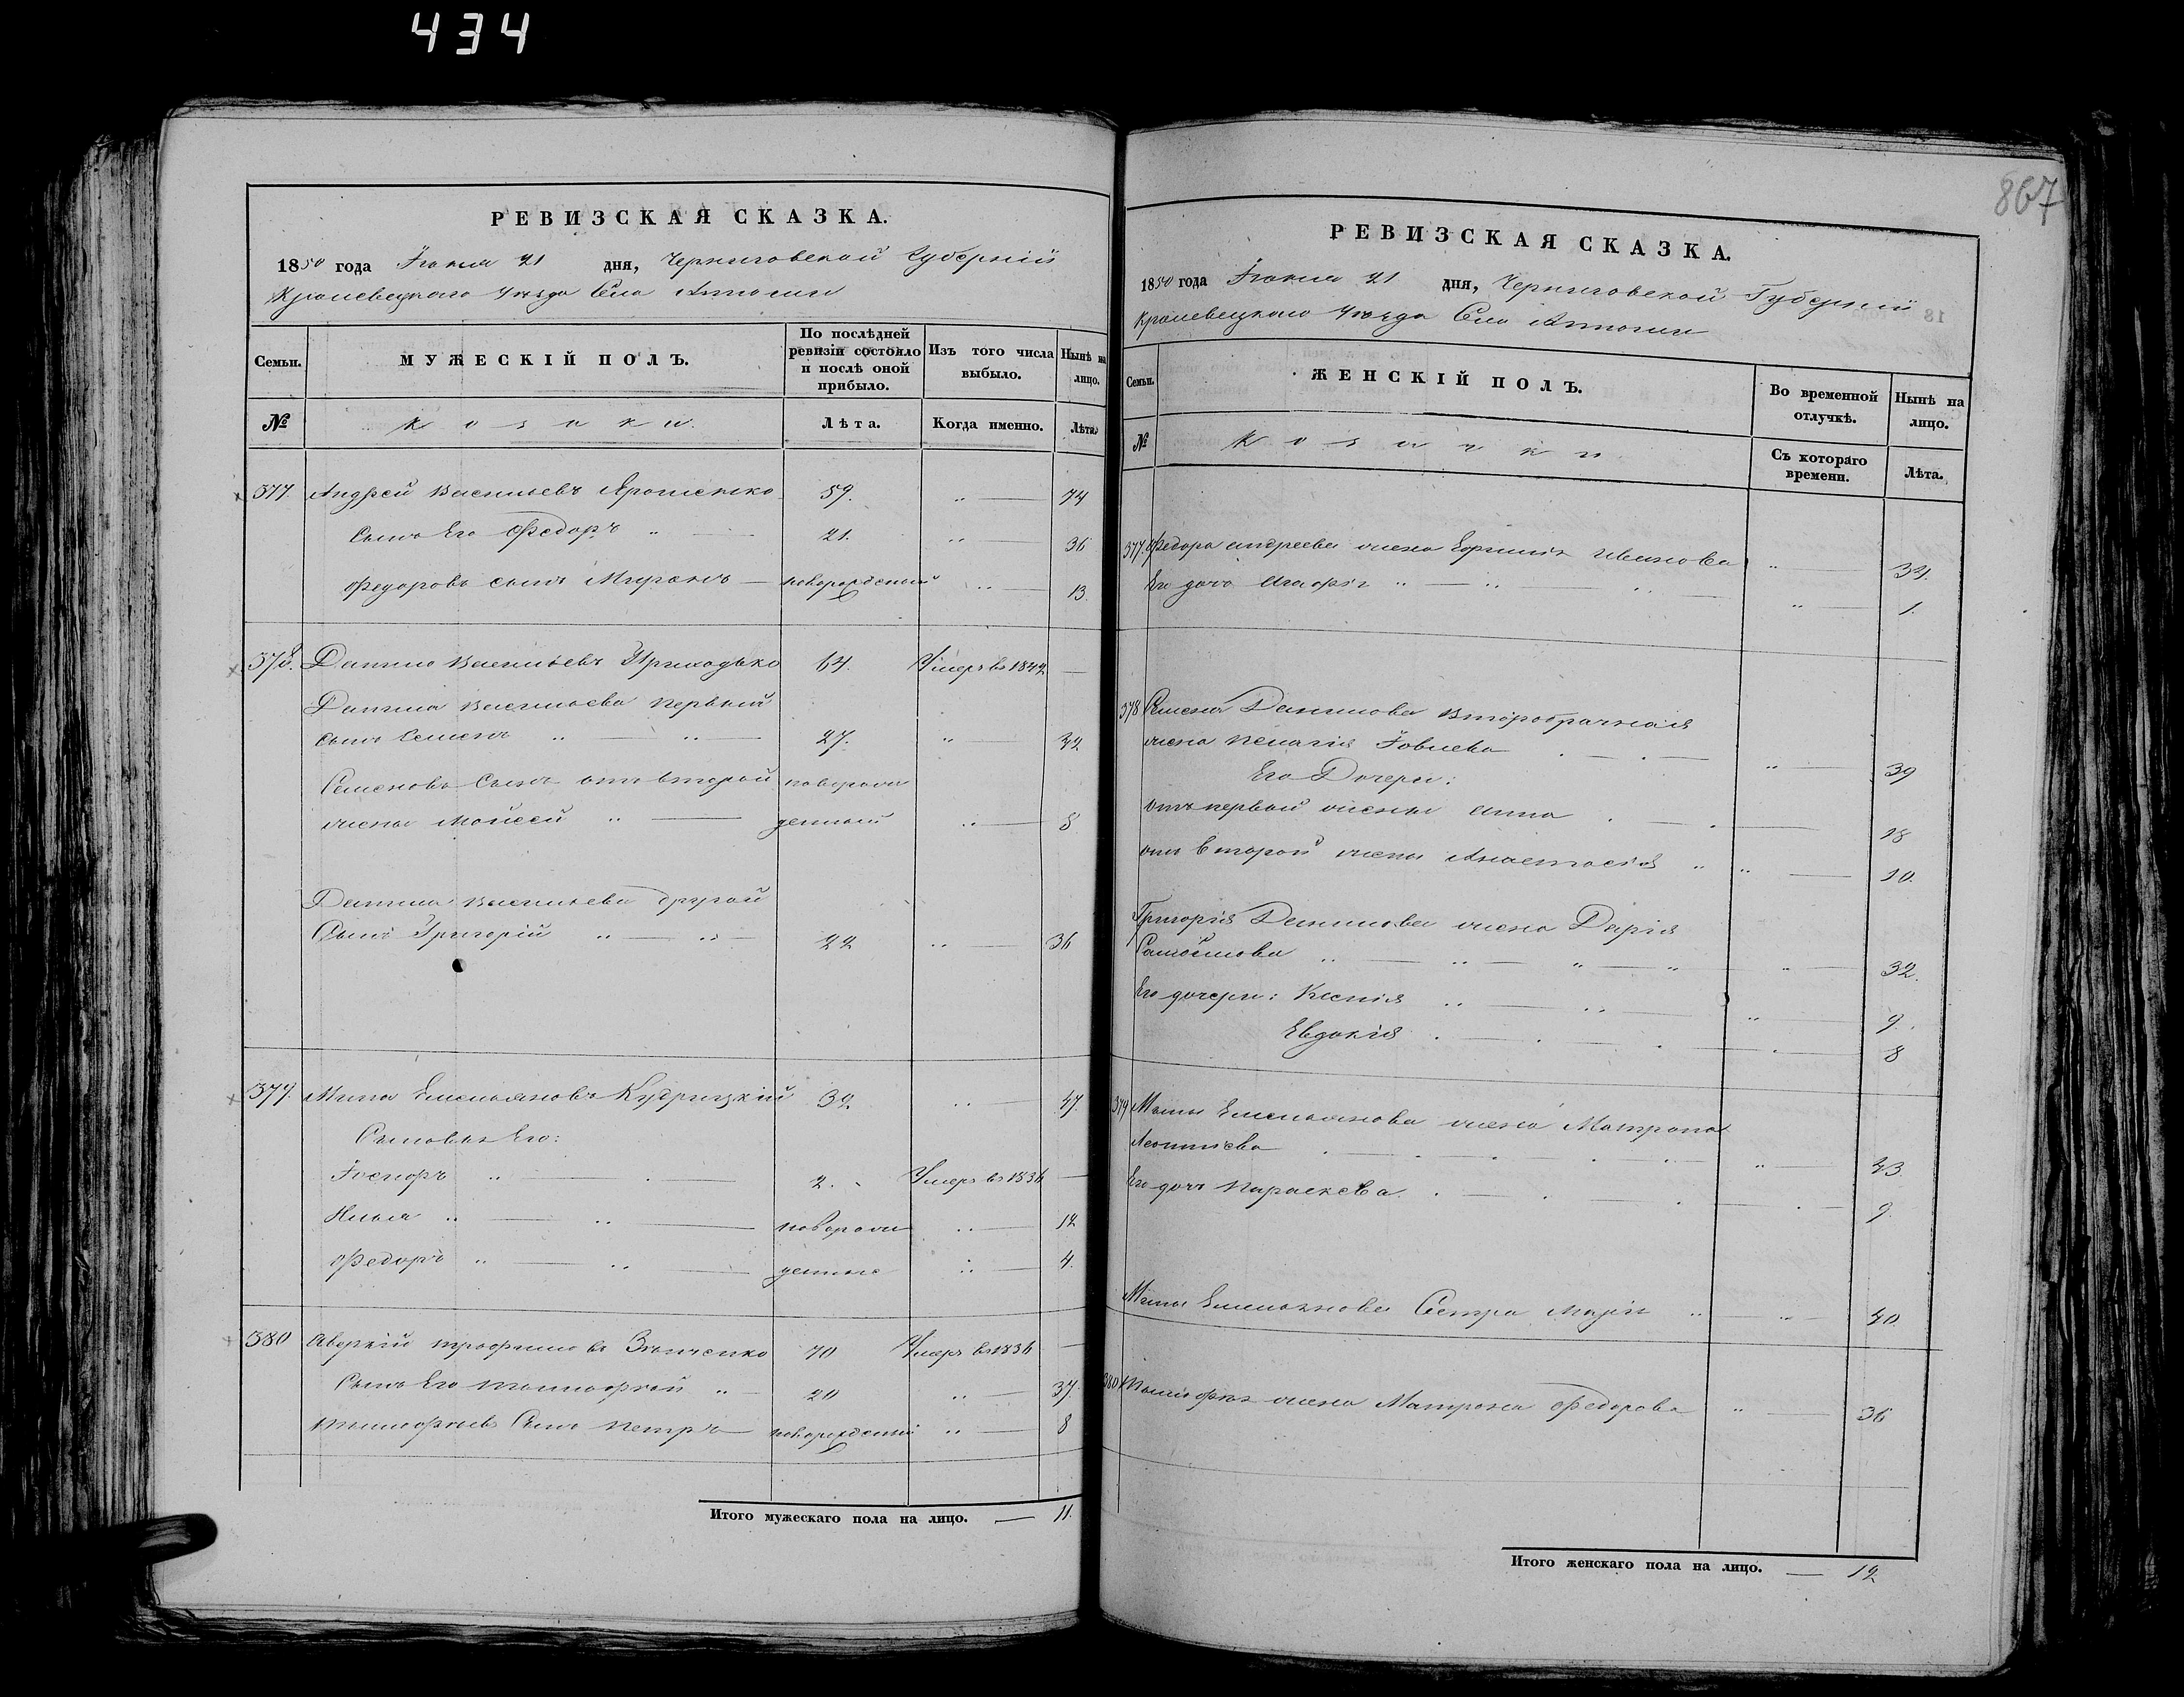 434
РЕВИЗСКАЯ СКАЗКА.
1850 года Iюня 21 дня, Черниговской Губернiи
Кролевецкаго Уезда Села
Семьи. МУЖЕСКIЙ ПОЛЪ. По послѣдней ревизiи состояло и послѣ оной прибыло. Изъ того числа выбыло. Нынѣ на лицо.
№ Козаки. Лѣта. Когда именно. Лѣта.
377. Андрей Васильевъ Ярошенко 59. „ — 74
Сынъ Его Федоръ „ — 21. „ — 36
Федоровъ сынъ Миронъ — новорожденный „ — 13.
378. Данило Васильевъ Приходько 64. Умеръ въ 1844 —
Данила Васильева первый
сынъ Семенъ „ — „ — 27. „ — 42
Семеновъ Сынъ отъ второй новорож
жены Мойсей „ — денный „ — 8
Данила Васильева другой
Сынъ Григорiй „ — „ — 22 „ — 36
379. Мина Емельяновъ Кудрицкiй 32. „ — 47.
Сыновья Его:
2. Умеръ въ 1836 —
Илья „ — „ — новорож „ — 12
Федоръ „ — „ — денные „ — 4.
380 Аверкiй Трофимовъ Зинченко 70 Умеръ въ 1836 —
Сынъ Его Тимофей „ — 20 „ — 37.
Тимофеевъ Сынъ Петръ — новорожденный „ — 8
Итого мужескаго пола на лицо. — 11.
867
РЕВИЗСКАЯ СКАЗКА.
1850 года Iюня 21 дня, Черниговской Губернiи
Кролевецкаго Уезда Села
Семьи. ЖЕНСКIЙ ПОЛЪ. Во временной отлучкѣ. Нынѣ на лицо.
№ Козачки. Съ котораго времени. Лѣта.
377. Федора Андреева жена Ефимiя Иванова „ — 34.
Его дочь „ — „ — „ — 1.
378 Семена Данилова второбрачная
жена Пелагiя Iовлева „ — 39
Его Дочери:
отъ первой жены Анна — 18
отъ второй жены Анастасiя „ „ — 10.
Григорiя Данилова жена Дарiя
Самойлова „ — „ — „ — „ — 32.
Его дочери: Ксенiя „ — „ — „ — 9.
Евдокiя — 8
379 Мины Емельянова жена Матрона
Леонтiева „ — 43
Его дочь Параскева — 9.
Мины Емельянова Сестра Марiя „ „ — 40.
380 Тимофея жена Матрона Федорова „ — 36
Итого женскаго пола на лицо. — 12